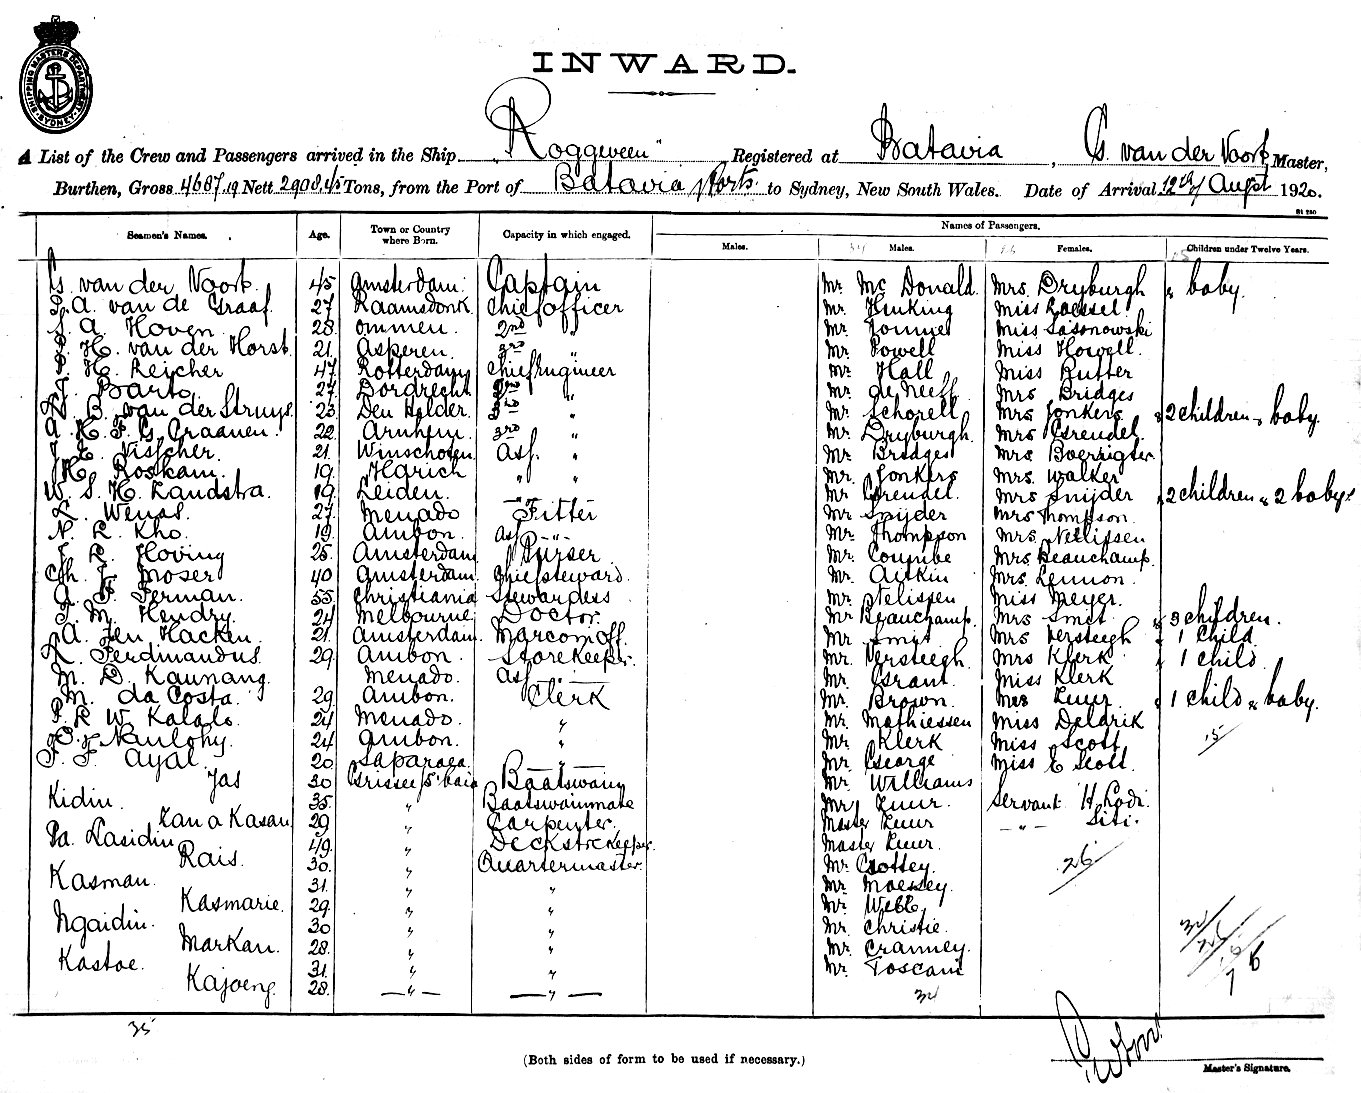 SHIPPING MASTERS DEPARTMENT SYDNEY
INWARD.
A List of the Crew and Passengers arrived in the Ship "Roggeveen" Registered at Batavia, G. van der Voort, Master,
Burthen, Gross 4687.19 Nett 2908.45 Tons, from the Port of Batavia & Ports to Sydney, New South Wales. Date of Arrival 12th of Augst 1920.
Seamen's Names. Age. Town or Country where Born. Capacity in which engaged. Names of Passengers.
Males. 34 Males. 26 Females. 15 Children under Twelve Years.
G. van der Voort. 45 Amsterdam. Captain Mr. Mc Donald. Mrs. Dryburgh & baby.
A. van de Graaf. 27 Raamsdonk. Chief officer Mr. Hinking Miss
A. Hoven 28. Ommen. 2nd " Mr. Miss Sasonowski
H. van der Horst. 21. Asperen. 3rd " Mr. Powell Miss Howell.
H. Reicher 47 Rotterdam Chief Engineer Mr. Hall Miss Rutter
Barto 27 Dordrecht. 2nd " Mr. de Neeff Mrs Bridges
B. van der Struys. 23. Den Helder. 3rd " Mr. Schorell Mrs Jonkers & 2 children & baby.
A. K. F. G. Graanen. 22. Arnhem. 3rd " Mr. Dryburgh. Mrs Greudel.
Visscher. 21. Winschoten Ass. " Mr. Bridges Mrs Boerrigter
Roskam. 19. Harich " " Mr. Jonkers Mrs. Walker
W. S. H. Landstra. 19. Leiden. " " Mr. Greudel. Mrs Snijder & 2 children & 2 babys
Wenas. 27. Menado Fitter Mr. Snijder Mrs Thompson.
N. R. Kho. 19. Ambon. Ass. -"- Mr. Thompson Mrs. Nelissen
J. R. Hoving 25. Amsterdam Purser Mr. Coumbe Mrs Beauchamp.
Ch. F. Moser 40 Amsterdam. Chiefsteward. Mr. Aitkin Mrs. Lennon.
A. F. Ferman. 55. Christiania Stewardess Mr. Nelissen Miss Meyer.
J. M. Hendry. 24 Melbourne Doctor. Mr. Beauchamp. Mrs Smit & 3 children.
A. Ten Hacken. 21. Amsterdam. Marconi off. Mr. Smit Mrs Versteegh & 1 child
Ferdinandus. 29. Ambon. Storekeeper. Mr. Versteegh. Mrs Klerk & 1 child.
M. D. Kaunang. Menado. Ass. -"- Mr. Grant. Miss Klerk
M. da Costa. 29. Ambon. Clerk Mr. Brown. Mrs Zuur & 1 child & baby.
P. R W. Kalalo. 24 Menado. " Mr. Mathiessen Miss Deldrik
Naulohy. 24 Ambon. " Mr. Klerk Miss Scott 15
F. F. Ayal. 20 Saparoea. -"- Mr. George Miss E Scott.
Jas 30 Grissee S'baia Boatswain Mr. Williams
Kidin. 35. " Boatswainmate Mr. Zuur. Servant H.
Kasan 29 " Carpenter. Master Zuur -"- Siti.
Pa Lasidin 49. " Deckstorekeeper. Master Zuur.
Rais. 30. " Quartermaster. Mr. 26
Kasman. 31. " " Mr. Massey.
Kasmarie. 29. " " Mr. Webb.
Ngaidin. 30 " " Mr. Christie.
Markan. 28. " " Mr. Cranney.
Kastoe. 31. " " Mr. Toscani
Kajoeng. 28. -"- -"- 34
35
(Both sides of form to be used if necessary.)
Master's Signature.